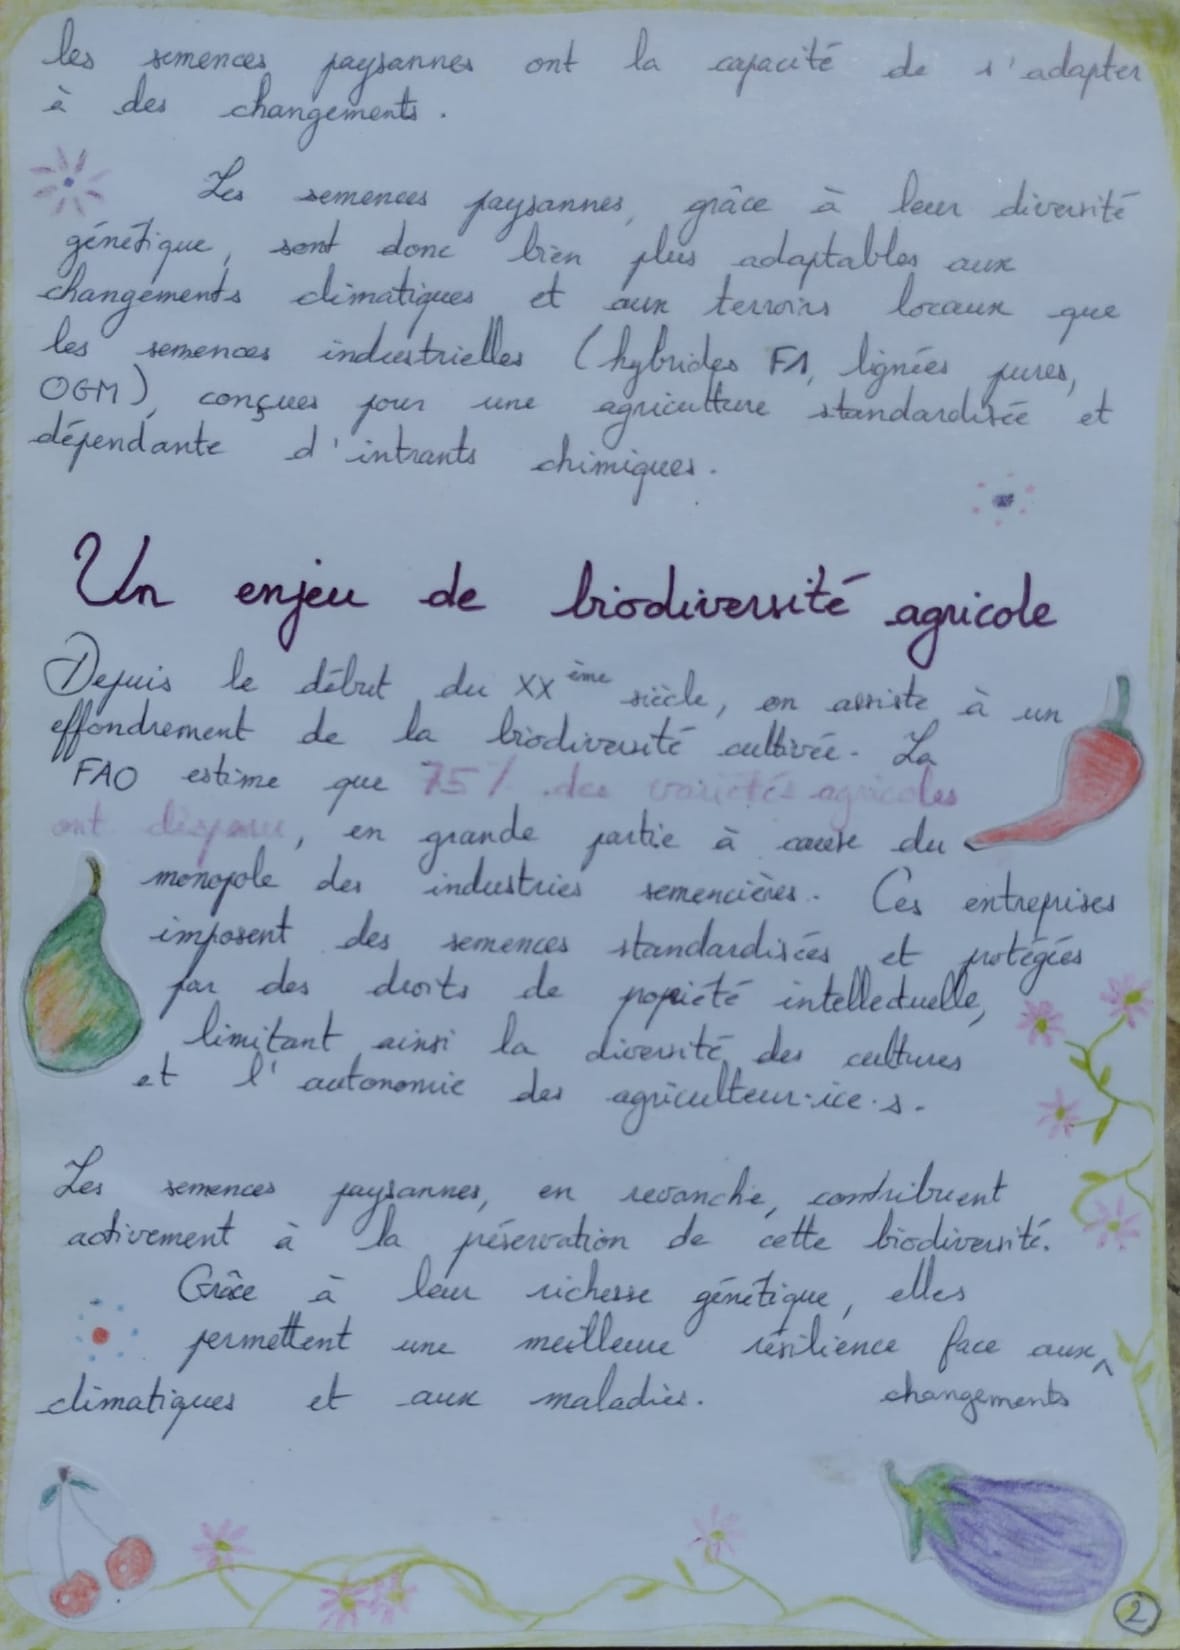 les semences paysannes ont la capacité de s'adapter
à des changements.
Les semences paysannes, grâce à leur diversité
génétique, sont donc bien plus adaptables aux
changements climatiques et aux terroirs locaux que
les semences industrielles (hybrides F1, lignées pures,
OGM), conçues pour une agriculture standardisée et
dépendante d'intrants chimiques.
Un enjeu de biodiversité agricole
Depuis le début du XXème siècle, on assiste à un
effondrement de la biodiversité cultivée. La
FAO estime que 75% des variétés agricoles
ont disparu, en grande partie à cause du
monopole des industries semencières. Ces entreprises
imposent des semences standardisées et protégées
par des droits de popriété intellectuelle,
limitant ainsi la diversité des cultures
et l'autonomie des agriculteur·ice·s.
Les semences paysannes, en revanche, contribuent
activement à la préservation de cette biodiversité.
Grâce à leur richesse génétique, elles
permettent une meilleure résilience face aux ^
climatiques et aux maladies. changements
2